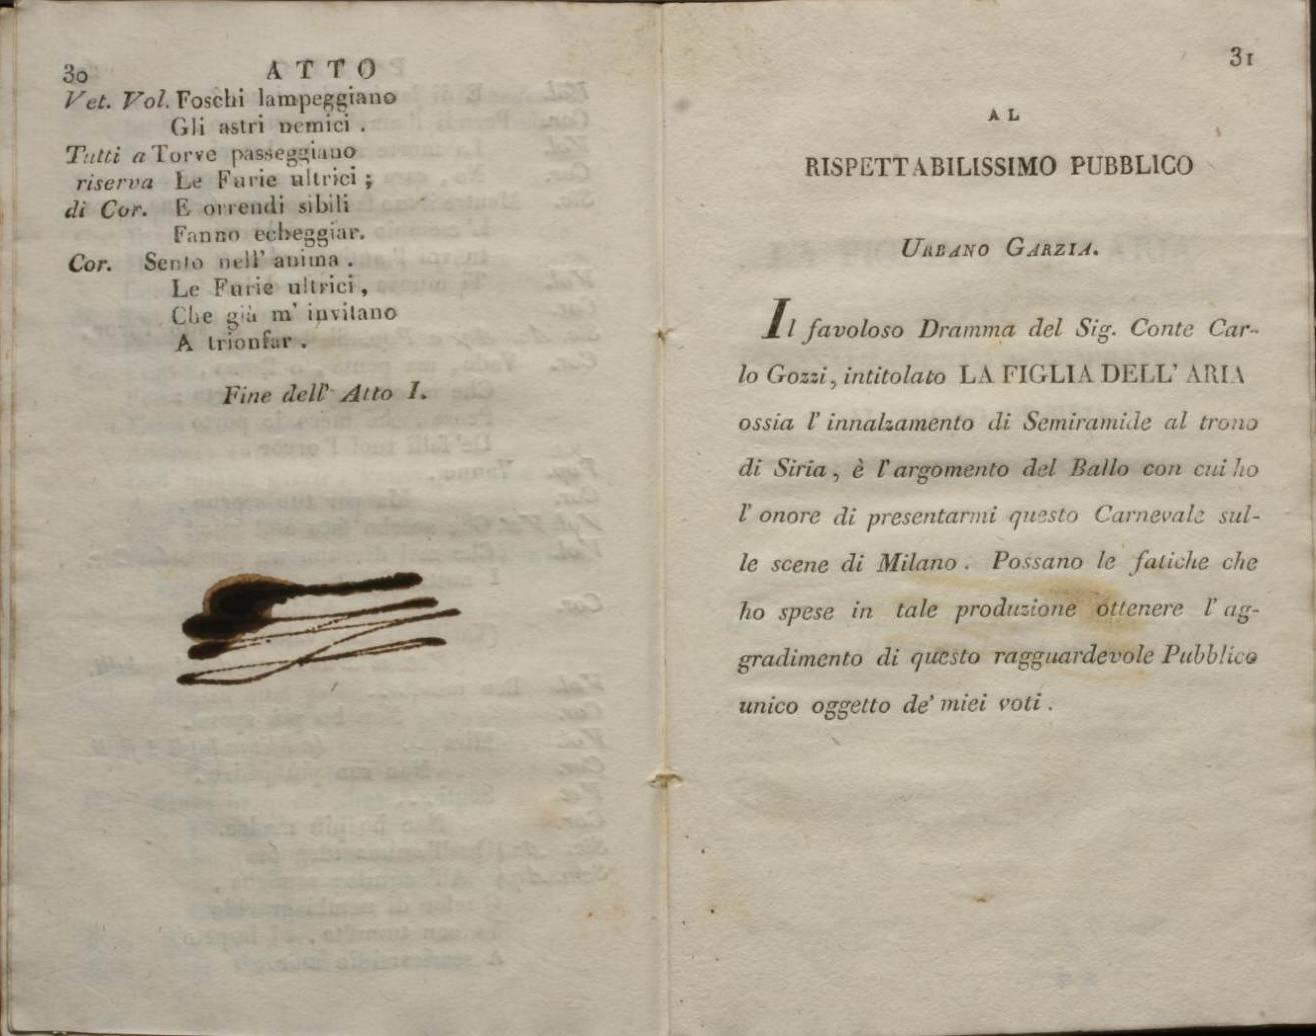 30
ATTO
Vet. Vol. Foschi lampeggiano
Gli astri nemici .
Tutti a Torve passeggiano
riserva Le Furie ultrici ;
di Cor. E orrendi sibili
Fanno echeggiar.
Cor. Sento nell' anima .
Le Furie ultrici ,
Che già m' invitano
A trionfar .
Fine dell' Atto I.
31
AL
RISPETTABILISSIMO PUBBLICO
URBANO GARZIA.
Il favoloso Dramma del Sig. Conte Car-
lo Gozzi, intitolato LA FIGLIA DELL' ARIA
ossia l' innalzamento di Semiramide al trono
di Siria, è l'argomento del Ballo con cui ho
l' onore di presentarmi questo Carnevale sul-
le scene di Milano . Possano le fatiche che
ho spese in tale produzione ottenere l' ag-
gradimento di questo ragguardevole Pubblico
unico oggetto de' miei voti .